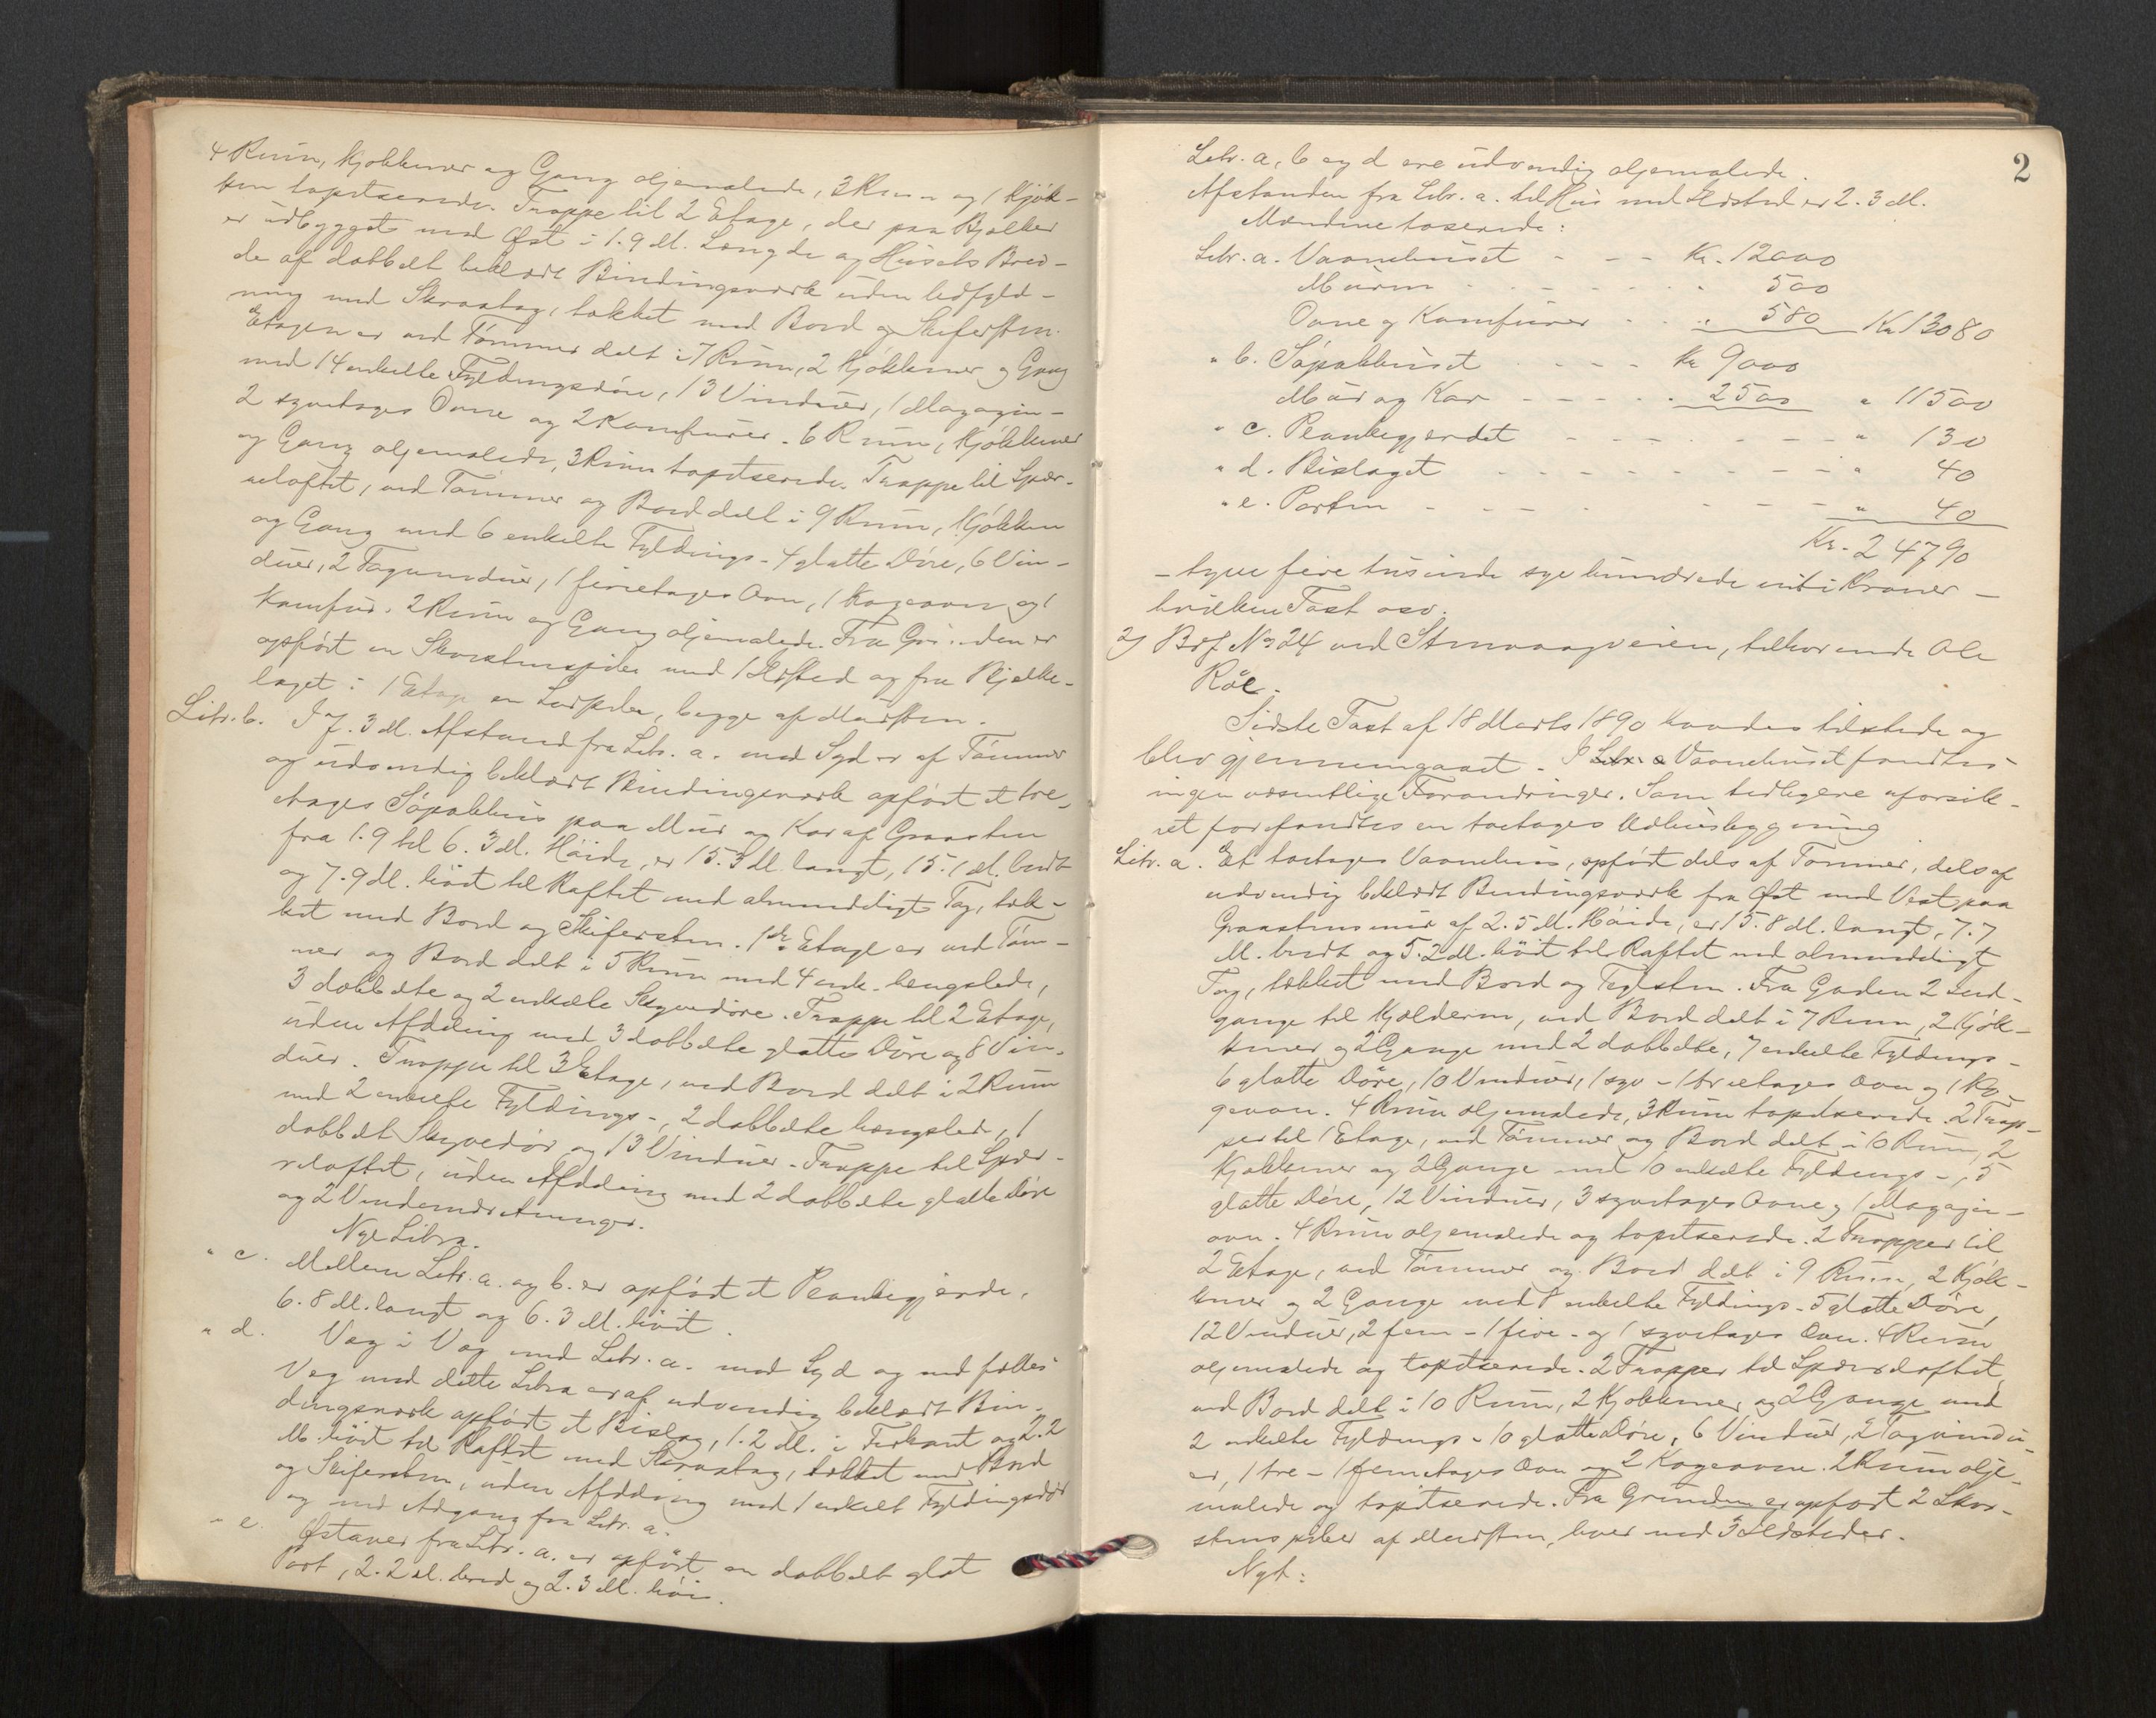 4 Rum, Kjøkkener og Gang oljemalede, 3 Rum og 1 Kjøk-
ken tapetserede. Trappe til 2 Etage, der paa Bjelker
er udbygget mod Øst i 1.9 M. Længde og Husets Bred-
de af dobbelt beklædt Bindingsværk uden Udfyld-
ning med Skraatag, tækket med Bord og Skifersten.
Etagen er ved Tømmer delt i 7 Rum, 2 Kjøkkener og Gang
med 14 enkelte Fyldingsdøre, 13 Vinduer, 1 Magazin-
2 syvetages Ovne og 2 Komfurer. 6 Rum, Kjøkkener
og Gang oljemalede, 3 Rum tapetserede. Trappe til Sper-
reloftet, ved Tømmer og Bord delt i 9 Rum, Kjøkken
og Gang med 6 enkelte Fyldings- 4 glatte Døre, 6 Vin-
duer, 2 Tagvinduer, 1 fireetages Ovn, 1 Kogeovn og 1
Komfur. 2 Rum og Gang oljemalede. Fra Grunden er
opført en Skorstenspibe med 1 Ildsted og fra Bjelke-
laget i 1 Etage en Luftpibe, begge af Mursten.
Litr. b. I 7.3 M. Afstand fra Litr. a. mod Syd er af Tømmer
og udvendig beklædt Bindingsværk opført et tre-
etages Søpakhus paa Mur og Kar af Graasten
fra 1.9 til 6.3 M. Høide, er 15.3 M. langt, 15.1 M. bredt
og 7.9 M. høit til Raftet med almindeligt Tag, tæk-
ket med Bord og Skifersten. 1ste Etage er ved Tøm-
mer og Bord delt i 5 Rum med 4 enk. hengslede,
3 dobbelte og 2 enkelte Skyvedøre. Trappe til 2 Etage,
uden Afdeling med 3 dobbelte glatte Døre og 8 Vin-
duer. Trappe til 3 Etage, ved Bord delt i 2 Rum
med 2 enkelte Fyldings-, 2 dobbelte hængslede, 1
dobbelt Skyvedør og 13 Vinduer. Trappe til Sper-
reloftet, uden Afdeling med 2 dobbelte glatte Døre
og 2 Vindeindretninger.
Nye Litra.
" c. Mellem Litr. a. og b. er opført et Plankegjerde,
6.8 M. langt og 6.3 M. høit.
" d. Væg i Væg med Litr. a. mod Syd og med fælles
Væg med dette Litra er af udvendig beklædt Bin-
dingsværk opført et Bislag, 1.2 M. i Firkant og 2.2
M. høit til Raftet med Skraatag, tækket med Bord
og Skifersten, uden Afdeling med 1 enkelt Fyldingsdør
og med Adgang fra Litr. a.
" e. Østover fra Litr. a. er opført en dobbelt glat
Port, 2.2 M. bred og 2.3 M. høi.
2
Litr. a, b og d ere udvendig oljemalede.
Afstanden fra Litr. a. til Hus med Ildsted er 2.3 M.
Mændene taxerede:
Litr. a. Vaanehuset - - - Kr. 12000
Muren - - - - - " 500
Ovne og Komfurer - - " 580 Kr 13080
" b. Søpakhuset - - - - Kr 9000
Mur og Kar - - - - " 2500 " 11500
" c. Plankegjerdet - - - - - - - " 130
" d. Bislaget - - - - - - - - - " 40
" e. Porten - - - - - - - " 40
Kr. 24790
- tyve fire tusinde syv hundrede nitti Kroner -
hvilken Taxt osv.
2) B.of. No 24 ved Strmvaagveien, tilhørende Ole
Røe.
Sidste Taxt af 18 Marts 1890 havdes tilstede og
blev gjennemgaaet. I Litr. a Vaanehuset fandtes
ingen væsentlige Forandringer. Som tidligere uforsik-
ret forefandtes en toetages Udhusbygning
Litr. a. Et toetages Vaanehus, opført dels af Tømmer, dels af
udvendig beklædt Bindingsværk fra Øst mod Vest paa
Graastensmur af 2.5 M. Høide, er 15.8 M. langt, 7.7
M. bredt og 5.2 M. høit til Raftet med almindeligt
Tag, tækket med Bord og Teglsten. Fra Gaden 2 Ind-
gange til Kjelderen, ved Bord delt i 7 Rum, 2 Kjøk-
kener og 2 Gange med 2 dobbelte, 7 enkelte Fyldings-
6 glatte Døre, 10 Vinduer, 1 syv- 1 treetages Ovn og 1 Ko-
geovn. 4 Rum oljemalede, 3 Rum tapetserede. 2 Trap-
per til 1 Etage, ved Tømmer og Bord delt i 10 Rum, 2
Kjøkkener og 2 Gange med 10 enkelte Fyldings-, 5
glatte Døre, 12 Vinduer, 3 syvetages Ovne og 1 Magazin-
ovn. 4 Rum oljemalede og tapetserede. 2 Trapper til
2 Etage, ved Tømmer og Bord delt i 9 Rum, 2 Kjøk-
kener og 2 Gange med 8 enkelte Fyldings- 5 glatte Døre,
12 Vinduer, 2 fem- 1 fire- og 1 syvetages Ovn. 4 Rum
oljemalede og tapetserede. 2 Trapper til Sperreloftet,
ved Bord delt i 10 Rum, 2 Kjøkkener og 2 Gange med
2 enkelte Fyldings- 10 glatte Døre, 6 Vinduer, 2 Tagvindu-
er, 1 tre- 1 femetages Ovn og 2 Kogeovne. 2 Rum olje-
malede og tapetserede. Fra Grunden er opført 2 Skor-
stenspiber af Mursten, hver med 3 Ildsteder.
Nyt: